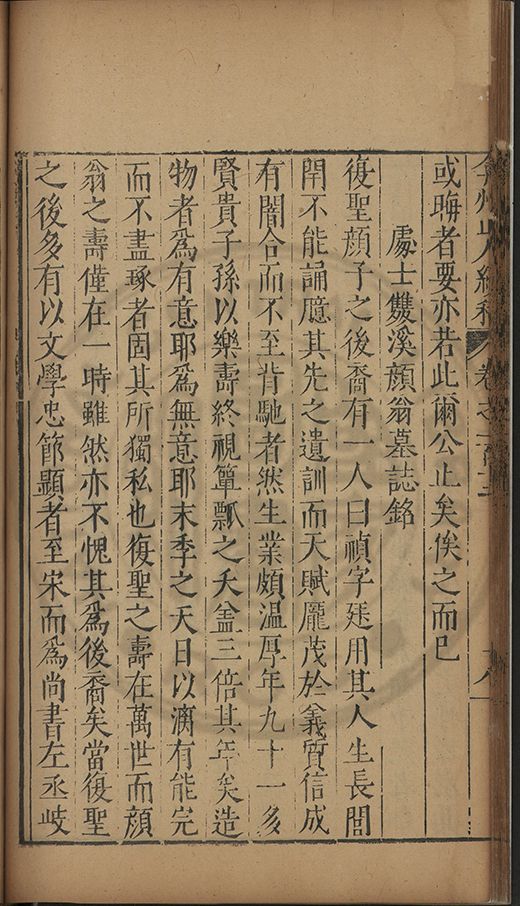 弇州山人續稿 卷之一百
或晦者要亦若此爾公止矣俟之而已
處士雙溪顔翁墓誌銘
復聖顔子之後裔有一人曰禎字廷用其人生長閭
閈不能誦臆其先之遺訓而天賦龐茂於義質信成
有闇合而不至背馳者然生業頗溫厚年九十一多
賢貴子孫以樂壽終視簞瓢之夭盖三倍其年矣造
物者爲有意耶爲無意耶末季之天日以漓有能完
而不盡琢者固其所獨私也復聖之壽在萬世而顔
翁之壽僅在一時雖然亦不愧其爲後裔矣當復聖
之後多有以文學忠節顯者至宋而爲尚書左丞岐